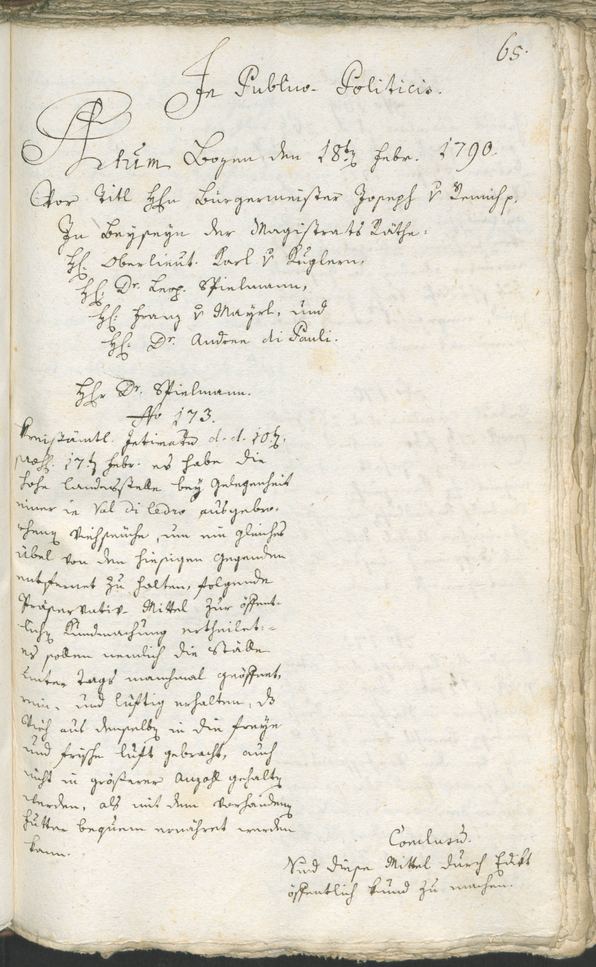 65.
In Publico-Politicis.
Actum Bozen den 18ten Febr. 1790.
Vor Titl Hhn Bürgermeister Joseph v Remich p.
In Beyseyn der Magistrats Räthe:
Hh: Oberlieut. Karl v Kuglern,
Hh: Dr. Leop. Spielmann,
Hh: Franz v Mayrl, und
Hh: Dr. Andree di Pauli.
Hhr Dr. Spielmann.
No 173.
Kreisämtl. Intimatum d. d. 10ten,
praes. 17ten Febr. es habe die
hohe Landesstelle bey Gelegenheit
einer in Val di Ledro ausgebro-
chenen Viehseuche, um ein gleiches
Übel von den hiesigen Gegenden
entfernet zu halten, folgende
Präservativ-Mittel zur öffent-
lichen Kundmachung ertheilet:
es sollen nemlich die Ställe
unter Tags manchmal geöffnet,
rein- und luftig erhalten, dz
Vieh aus denselben in die freye
und frische Luft gebracht, auch
nicht in größerer Anzahl gehalten
werden, als mit dem vorhandenen
Futter bequem ernähret werden
kann.
Conclusum.
Sind diese Mittel durch Edikt
öffentlich kund zu machen.